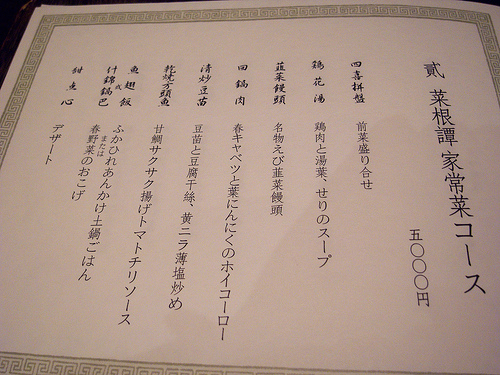 貮 菜根譚家常菜コース
五〇〇〇円
四喜拼盤
前菜盛り合せ
鶏花湯
鶏肉と湯葉、せりのスープ
韮菜饅頭
名物えび韮菜饅頭
回鍋肉
春キャベツと葉にんにくのホイコーロー
清炒豆苗
豆苗と豆腐干絲、黄ニラ薄塩炒め
乾焼方頭魚
甘鯛サクサク揚げトマトチリソース
魚翅飯
或
什錦鍋巴
ふかひれあんかけ土鍋ごはん
または
春野菜のおこげ
甜点心
デザート